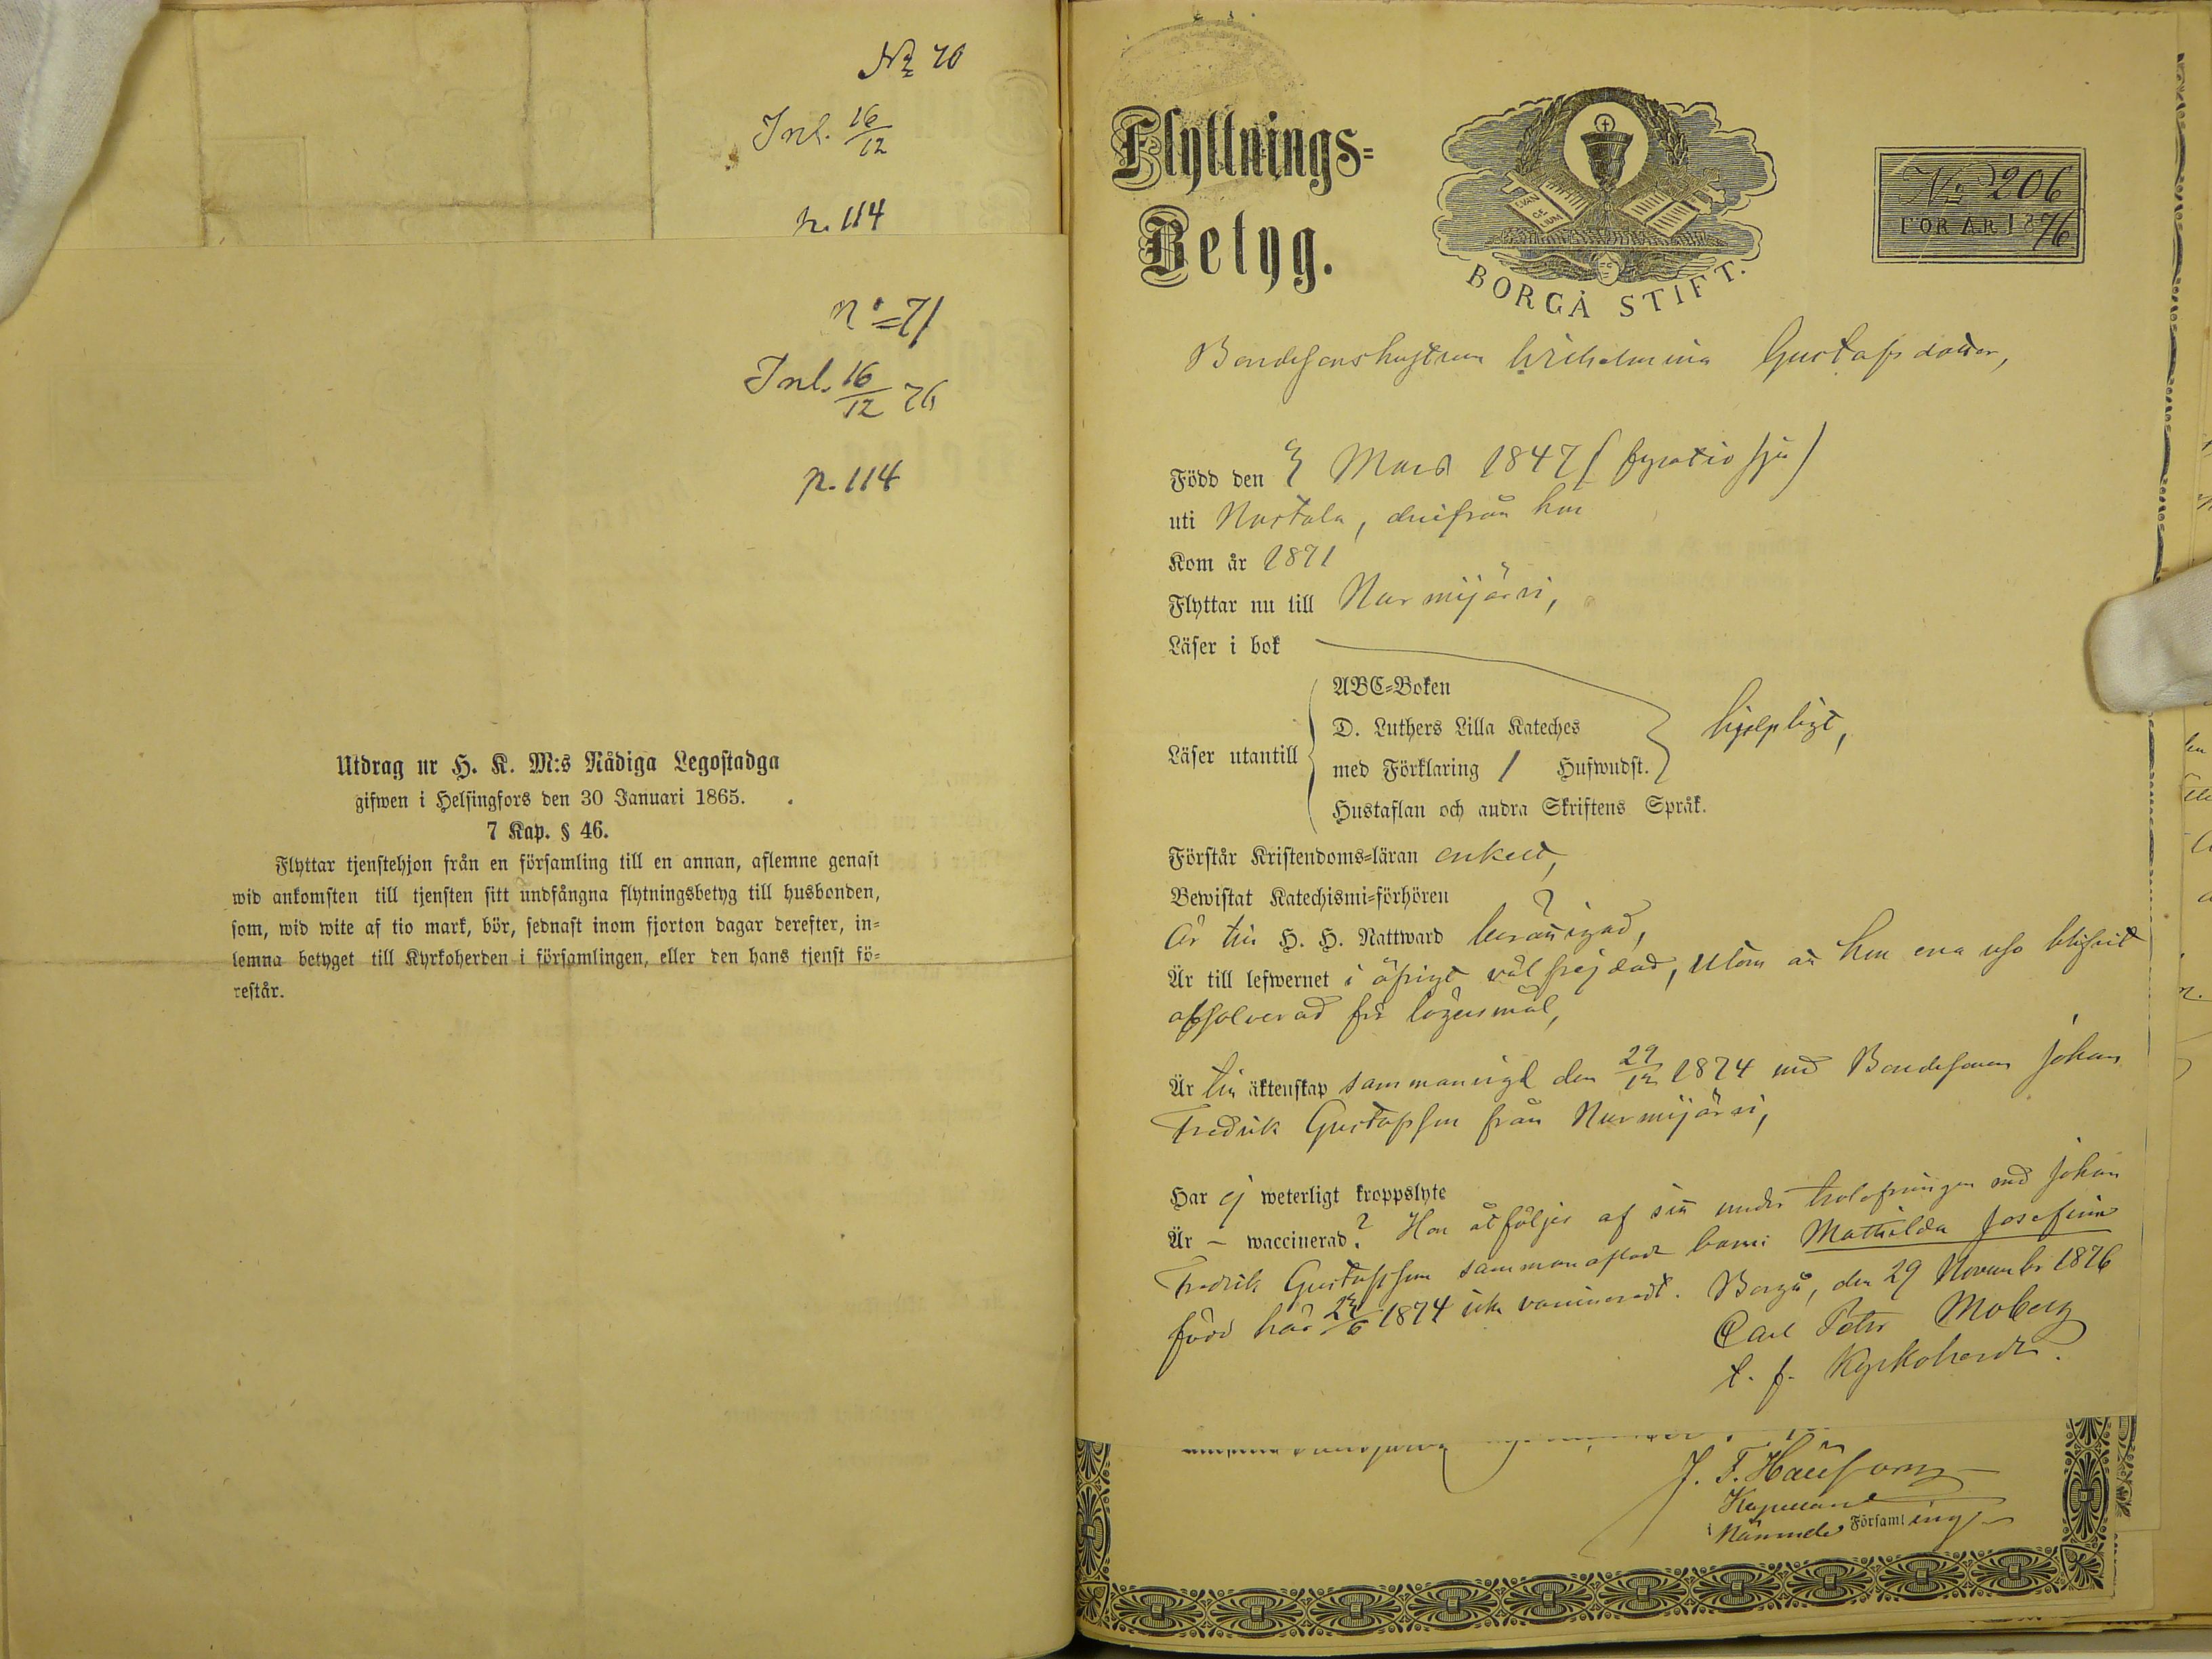 No 70
Inl. 16/12
p. 114
No 71
Inl. 16/12 76
p. 114
Utdrag ur H. K. M:s Nådiga Legostadga
gifwen i Helsingfors den 30 Januari 1865.
7 Kap. § 46.
Flyttar tjenstehjon från en församling till en annan, aflemne genast
wid ankomsten till tjensten sitt undfångna flytningsbetyg till husbonden,
som, wid wite af tio mark, bör, sednast inom fjorton dagar derefter, in=
lemna betyget till Kyrkoherden i församlingen, eller den hans tjenst fö=
restår.
Flyttnings=
Betyg.
EVAN
GE
LIUM
BORGÅ STIFT.
No 206
FÖR ÅR 1876
Bondesonshustrun Wilhelmina Gustafsdotter,
Född den 3 Mars 1847 (fyratio sju)
uti Nastola, derifrån hon
Kom år 1871
Flyttar nu till Nurmijärvi,
Läser i bok
ABC=Boken
D. Luthers Lilla Kateches
Läser utantill
med Förklaring / Hufwudst.
hjelpligt,
Hustaflan och andra Skriftens Språk.
Förstår Kristendoms=läran enkelt,
Bewistat Katechismi=förhören ?
Är till H. H. Nattward berättigad,
Är till lefwernet i öfrigt väl frejdad, utom att hon en a blifvit
absolverad för lägersmål,
Är till äktenskap sammanvigd den 29/12 1874 med Bondesonen Johan
Fredrik Gustafsson från Nurmijärvi,
Har ej weterligt kroppslyte
Är — waccinerad? Hon åtföljes af sitt under trolofningen med Johan
Fredrik Gustafsson sammanaflade barn: Mathilda Josefina
född här 1874 icke vaccineradt. Borgå, den 29 November 1876
Carl Peter Moberg
t. f. Kyrkoherde.
Kapellan
i Nämnde Församling